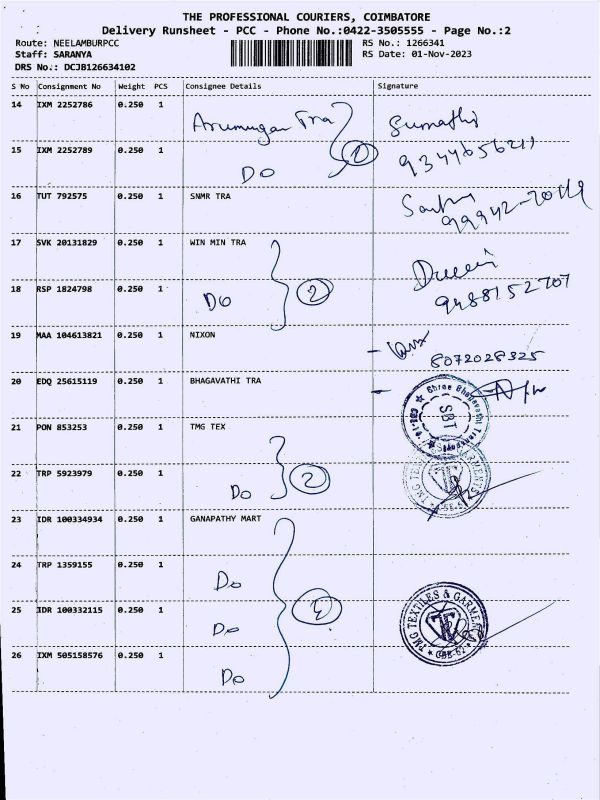 THE PROFESSIONAL COURIERS, COIMBATORE
Delivery Runsheet - PCC - Phone No.:0422-3505555 - Page No.:2
Route: NEELAMBURPCC RS No.: 1266341
Staff: SARANYA RS Date: 01-Nov-2023
DRS No.: DCJB126634102
S No Consignment No Weight PCS Consignee Details Signature
14 IXM 2252786 0.250 1 Arumugan Tra Sumathi
15 IXM 2252789 0.250 1 Do 1 9344656211
16 TUT 792575 0.250 1 SNMR TRA
17 SVK 20131829 0.250 1 WIN MIN TRA
18 RSP 1824798 0.250 1 Do 2 9488152707
19 MAA 104613821 0.250 1 NIXON 8072028325
20 EDQ 25615119 0.250 1 BHAGAVATHI TRA
Shree Bhagavathi SBT
21 PON 853253 0.250 1 TMG TEX
22 TRP 5923979 0.250 1 Do 2
23 IDR 100334934 0.250 1 GANAPATHY MART
24 TRP 1359155 0.250 1 Do
25 IDR 100332115 0.250 1 Do
TMG TEXTILES & GARMENTS CBE-62
26 IXM 505158576 0.250 1 Do